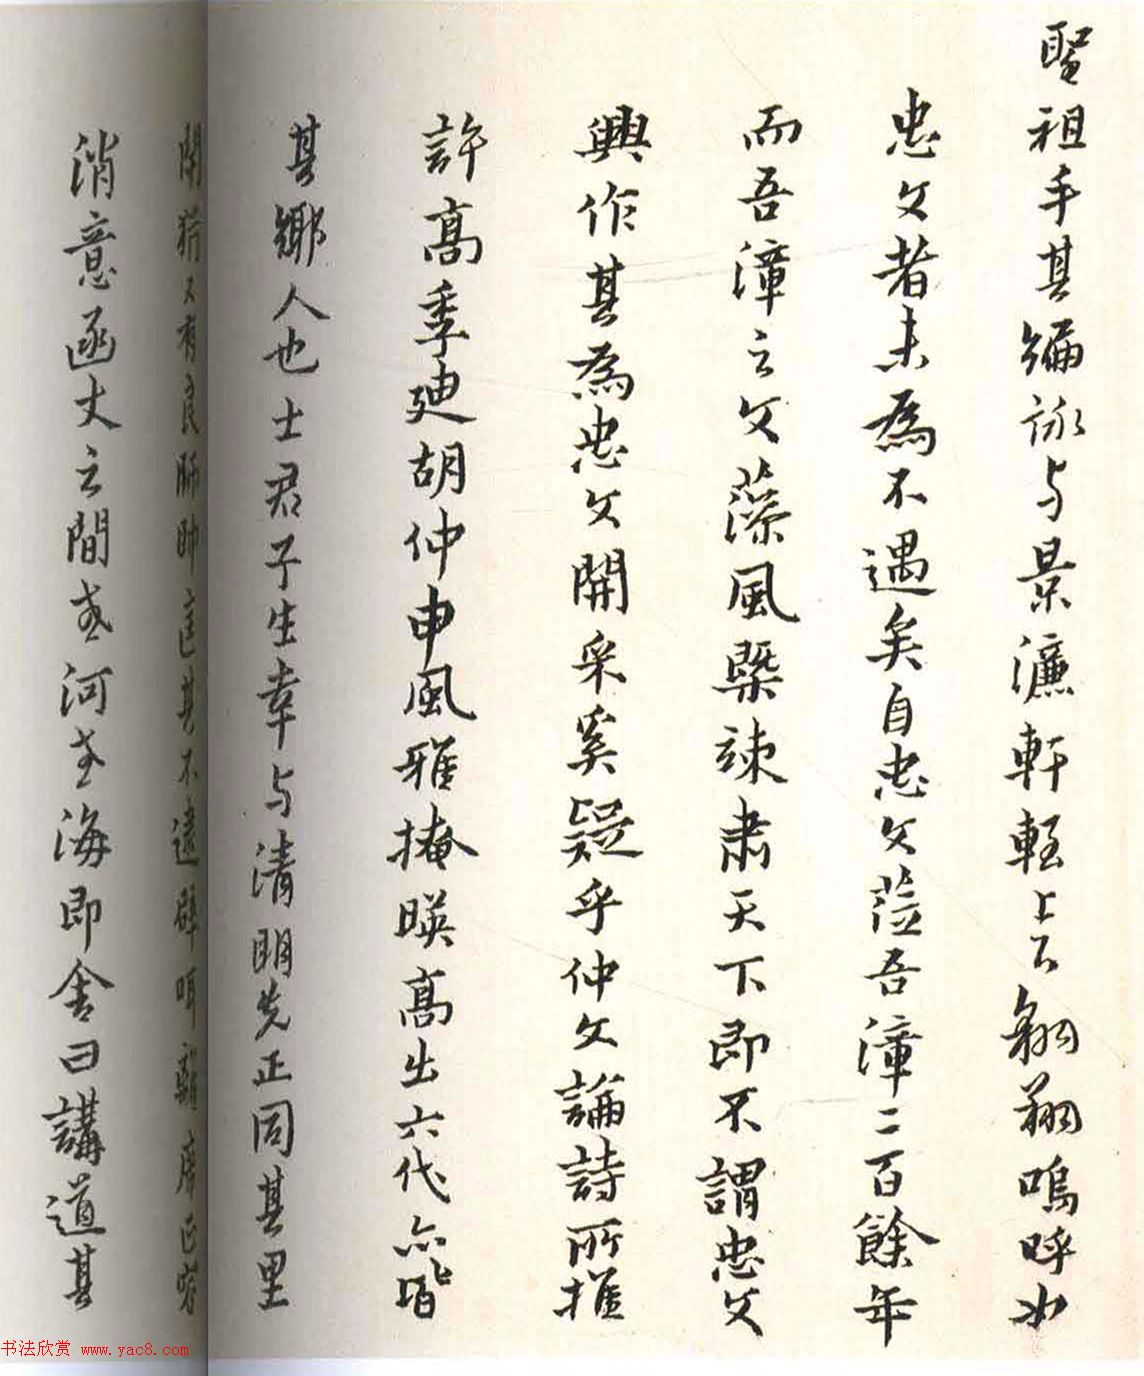 聖祖手其編詠与景濂軒輊上下翱翔嗚呼如
忠文者未為不遇矣自忠文蒞吾漳二百餘年
而吾漳之文藻風槩竦肅天下即不謂忠文
興作其為忠文開采奚疑乎仲文論詩所推
許高季迪胡仲申風雅掩暎高出六代亦皆
其鄉人也士君子生幸与清明先正同其里
閈猶又有良師帥匡其不逮辟咡
消意函丈之間為河為海即舍曰講道其
书法欣赏 www.yac8.com